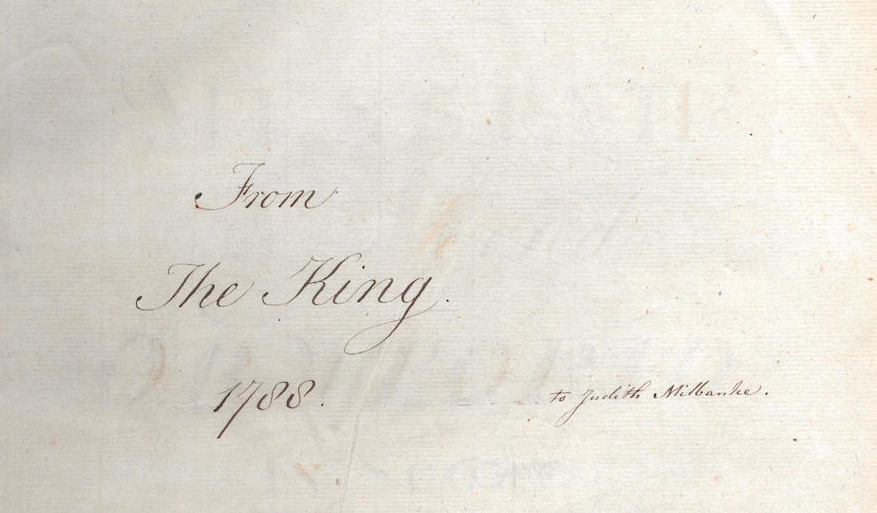 From
The King.
1788.
to Judith Milbanke.